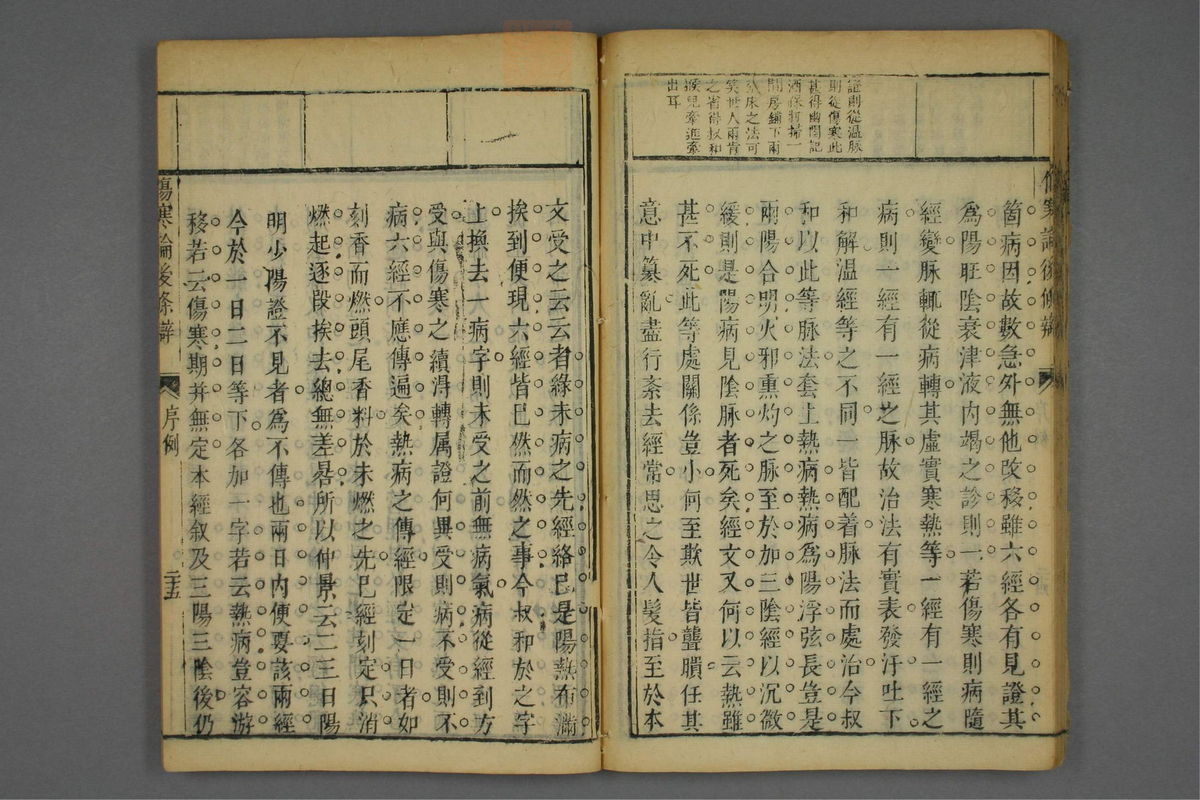 證則從溫脉
則從傷寒此
甚得幽閒記
酒保打掃一
間房鋪下兩
張床之法可
笑世人兩肯
之省得叔和
猴兒牽進牽
出耳
箇病因故數急外無他改移雖六經各有見證其
爲陽旺陰衰津液內竭之診則一若傷寒則病隨
經變脉輒從病轉其虛實寒熱等一經有一經之
病則一經有一經之脉故治法有實表發汗吐下
和解溫經等之不同一皆配着脉法而處治今叔
和以此等脉法套上熱病熱病爲陽浮弦長豈是
兩陽合明火邪熏灼之脉至於加三陰經以沉微
緩則是陽病見陰脉者死矣經文又何以云熱雖
甚不死此等處關係豈小何至欺世皆聾瞶任其
意中纂亂盡行紊去經常思之令人髮指至於本
文受之云云者緣未病之先經絡已是陽熱布滿
挨到便現六經皆已然而然之事今叔和於之字
上換去一病字則未受之前無病氣病從經到方
受與傷寒之續淂轉属證何異受則病不受則不
病六經不應傳遍矣熱病之傳經限定一日者如
刻香而燃頭尾香料於未燃之先已經刻定只消
燃起逐段挨去總無差晷所以仲景云二三日陽
明少陽證不見者爲不傳也兩日內便要該兩經
今於一日二日等下各加一字若云熱病豈容游
移若云傷寒期并無定本經叙及三陽三陰後仍
傷寒論後條辯
序例
二十五